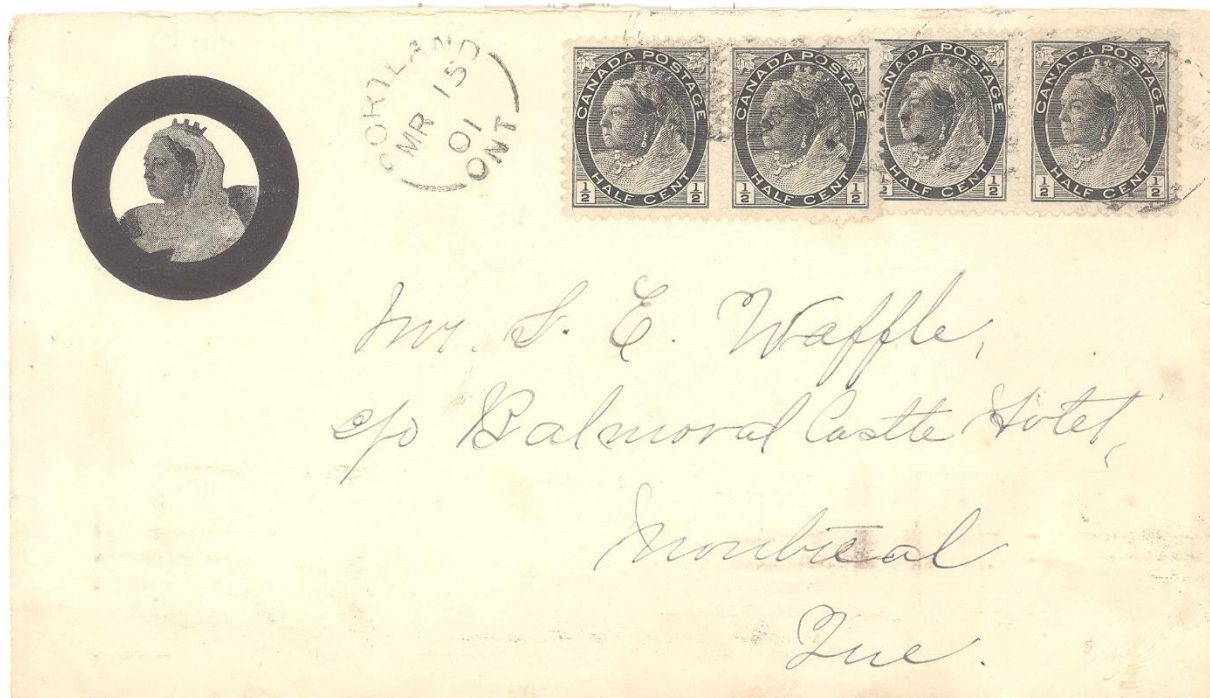 PORTLAND
MR 15
01
ONT
CANADA POSTAGE
HALF CENT
1/2 1/2
CANADA POSTAGE
HALF CENT
1/2 1/2
CANADA POSTAGE
HALF CENT
1/2 1/2
CANADA POSTAGE
HALF CENT
1/2 1/2
Mr. S. E. Waffle,
c/o Balmoral Castle Hotel,
Montreal
Que.